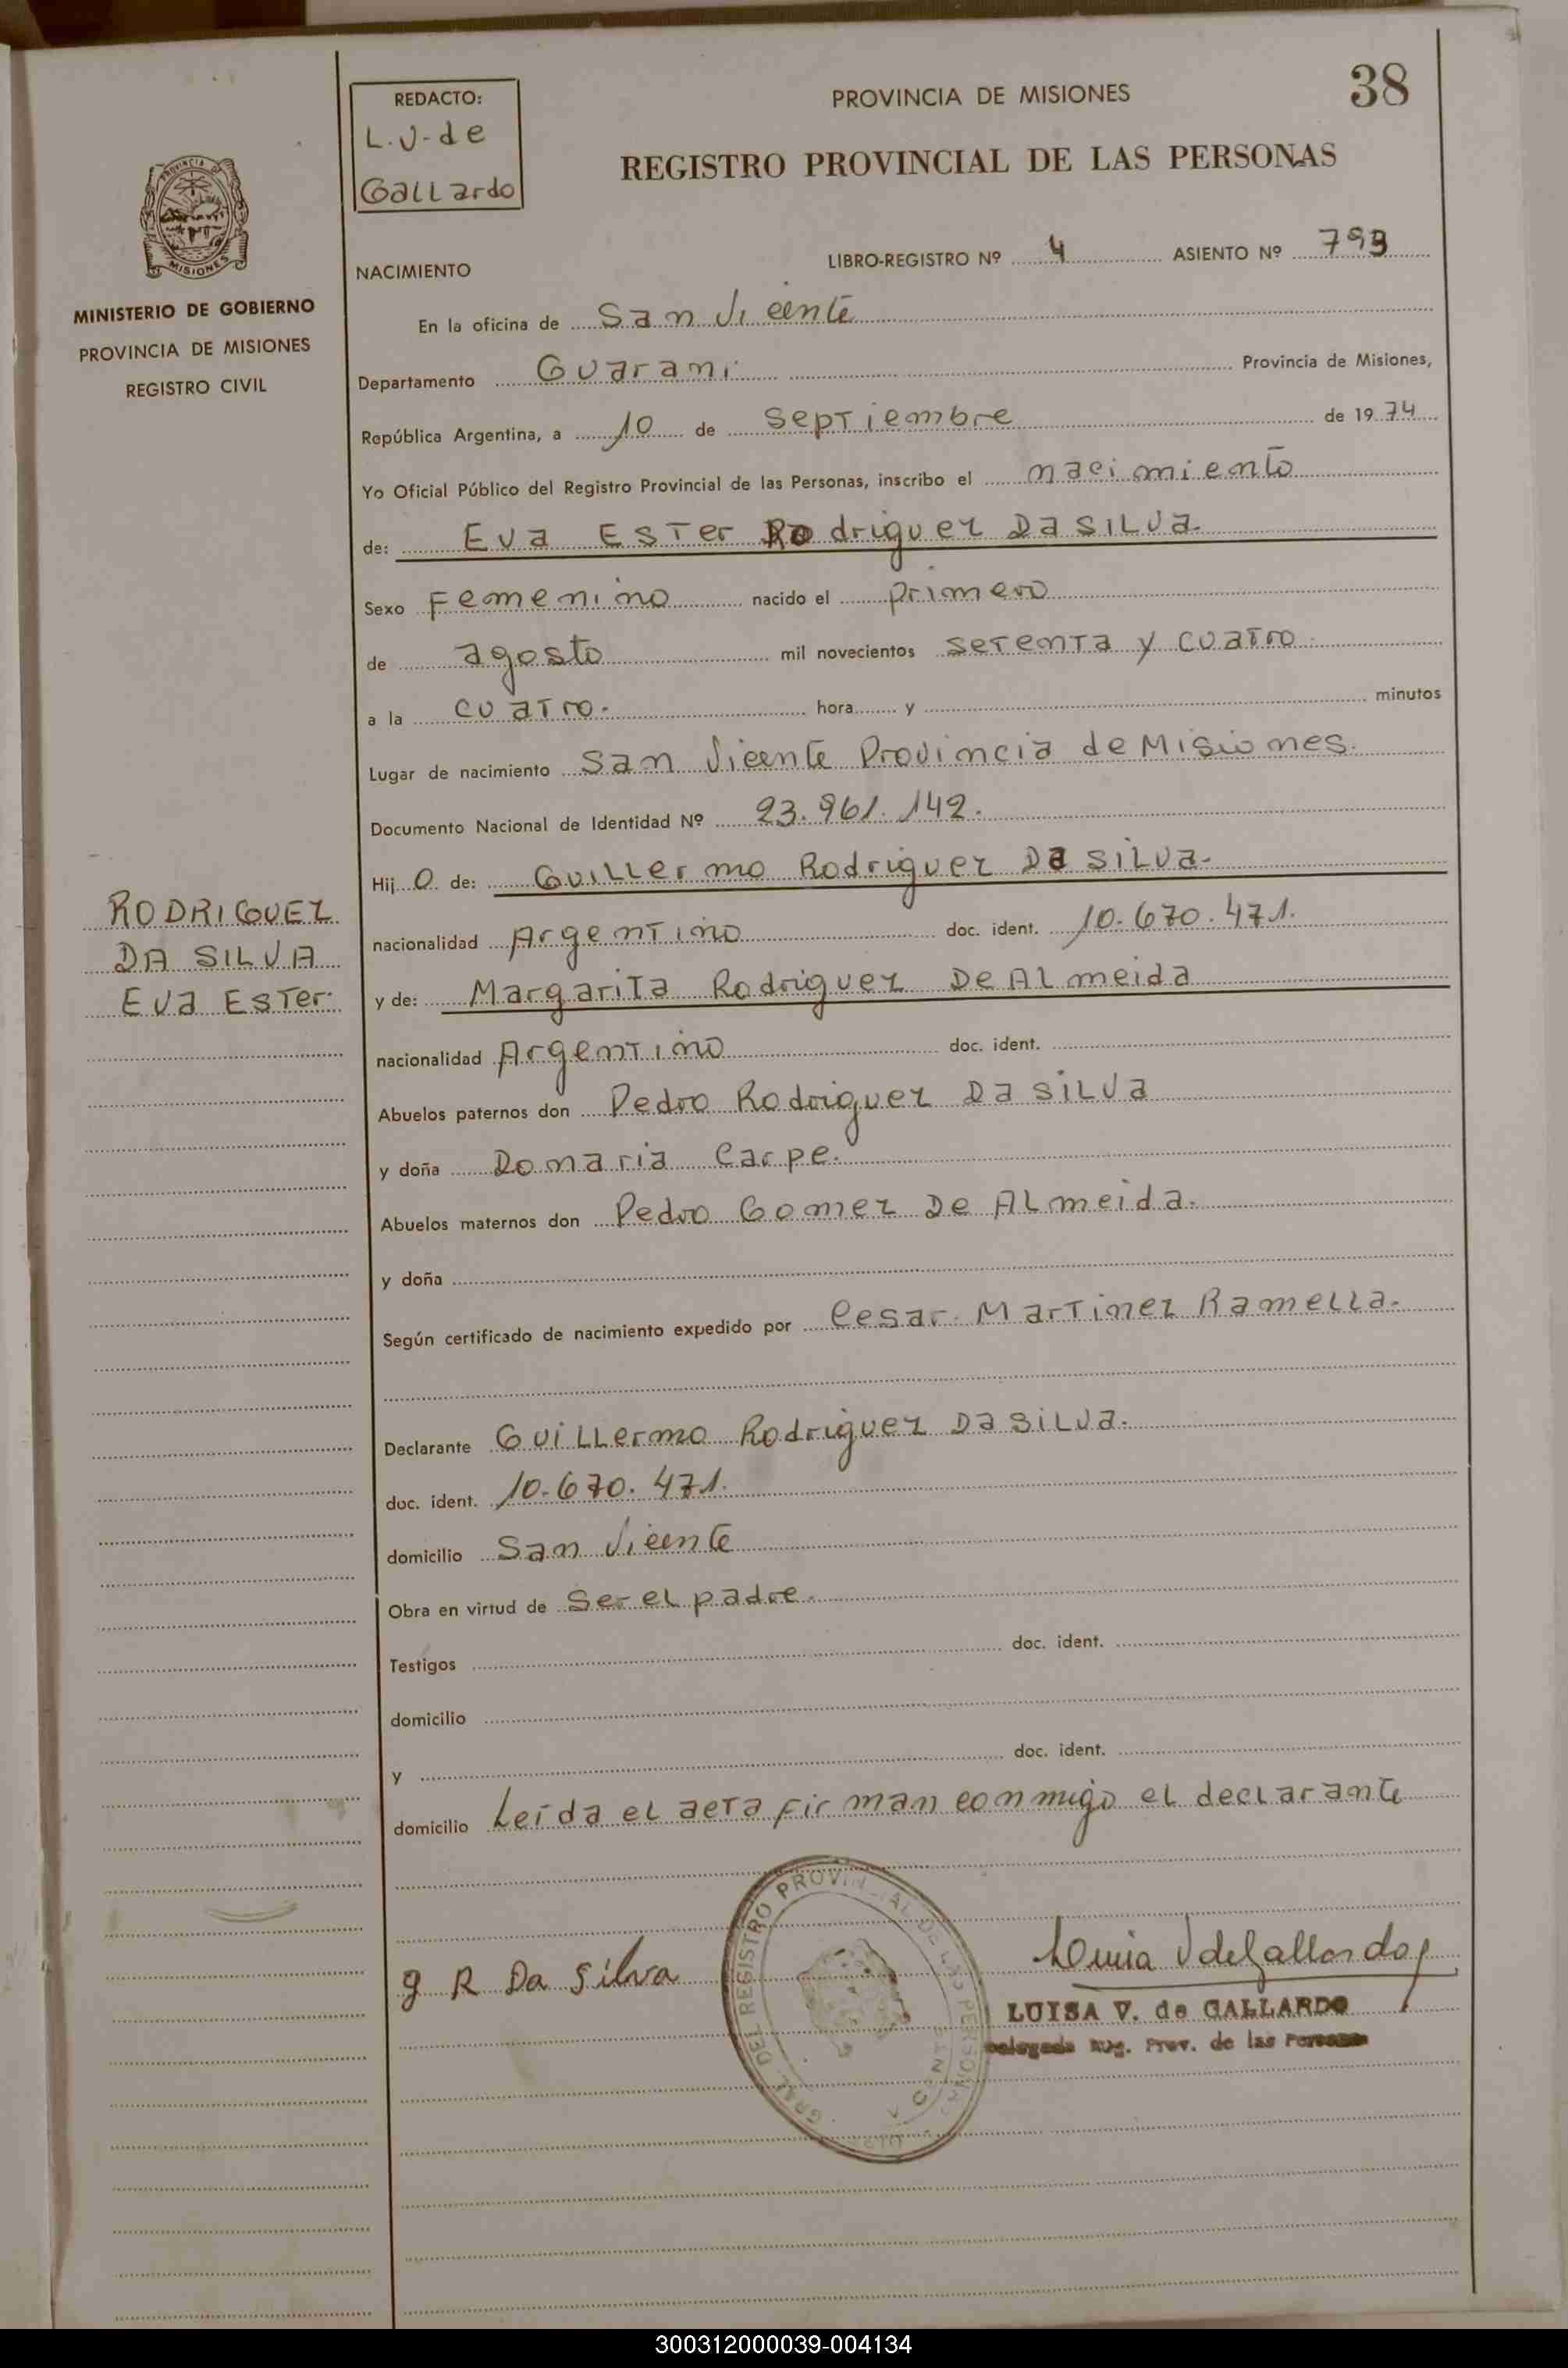 38
REDACTO:
L.V-de
Gallardo
PROVINCIA DE MISIONES
REGISTRO PROVINCIAL DE LAS PERSONAS
PROVINCIA
MISIONES
MINISTERIO DE GOBIERNO
PROVINCIA DE MISIONES
REGISTRO CIVIL
NACIMIENTO
LIBRO-REGISTRO Nº 4 ASIENTO Nº 793
En la oficina de San Vicente
Departamento Guarani Provincia de Misiones,
República Argentina, a 10 de Septiembre de 1974
Yo Oficial Público del Registro Provincial de las Personas, inscribo el nacimiento
de: Eva Ester Rodriguez Da Silva.
Sexo Femenino nacido el primero
de agosto mil novecientos setenta y cuatro
a la cuatro. hora y minutos
Lugar de nacimiento San Vicente Provincia de Misiones.
Documento Nacional de Identidad Nº 23.961.142.
Hij o de: Guillermo Rodriguez Da Silva.
nacionalidad Argentino doc. ident. 10.670.471.
y de: Margarita Rodriguez De Almeida
nacionalidad Argentino doc. ident.
Abuelos paternos don Pedro Rodriguez Da Silva
y doña Domaria Carpe.
Abuelos maternos don Pedro Gomez De Almeida.
y doña
Según certificado de nacimiento expedido por Cesar Martinez Ramella.
Declarante Guillermo Rodriguez Da Silva.
doc. ident. 10.670.471.
domicilio San Vicente
Obra en virtud de Ser el padre.
Testigos doc. ident.
domicilio
y doc. ident.
domicilio Leída el acta firman conmigo el declarante
RODRIGUEZ
DA SILVA
Eva Ester
g R Da Silva
GRAL. DEL REGISTRO PROVINCIAL DE LAS PERSONAS
Luisa V de Gallardo
LUISA V. de GALLARDO
Delegada Reg. Prov. de las Personas
300312000039-004134